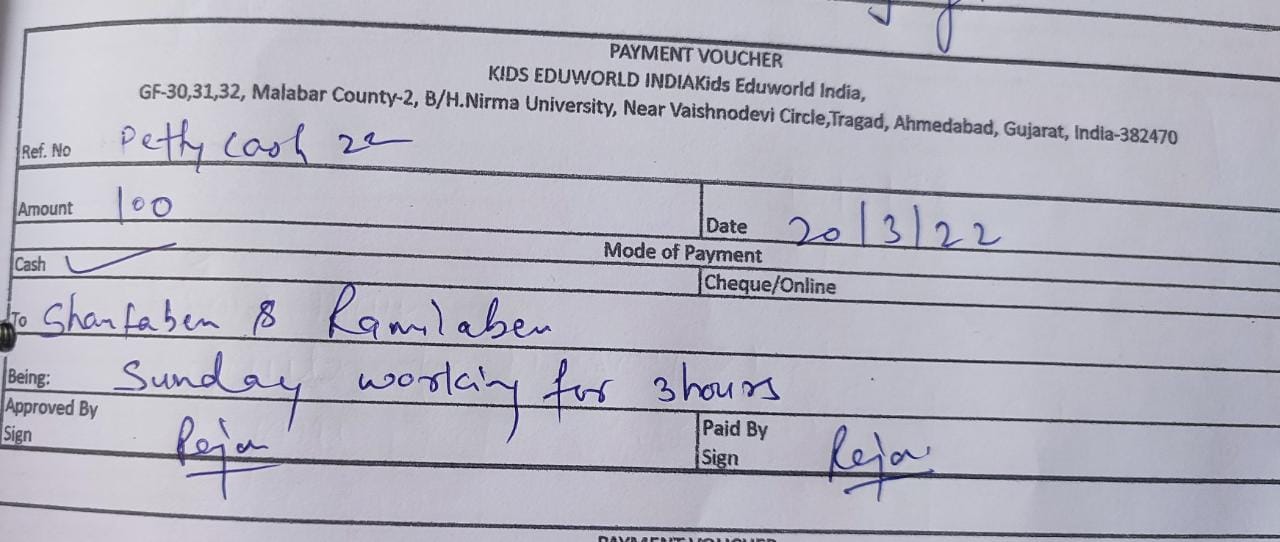 PAYMENT VOUCHER
KIDS EDUWORLD INDIAKids Eduworld India,
GF-30,31,32, Malabar County-2, B/H.Nirma University, Near Vaishnodevi Circle,Tragad, Ahmedabad, Gujarat, India-382470
Ref. No Petty cash 22
Amount 100 Date 20/3/22
Mode of Payment
Cash ✓ Cheque/Online
To Shantaben & Ramilaben
Being: Sunday working for 3 hours
Approved By Paid By
Sign Sign
PAYMENT VOUCHER